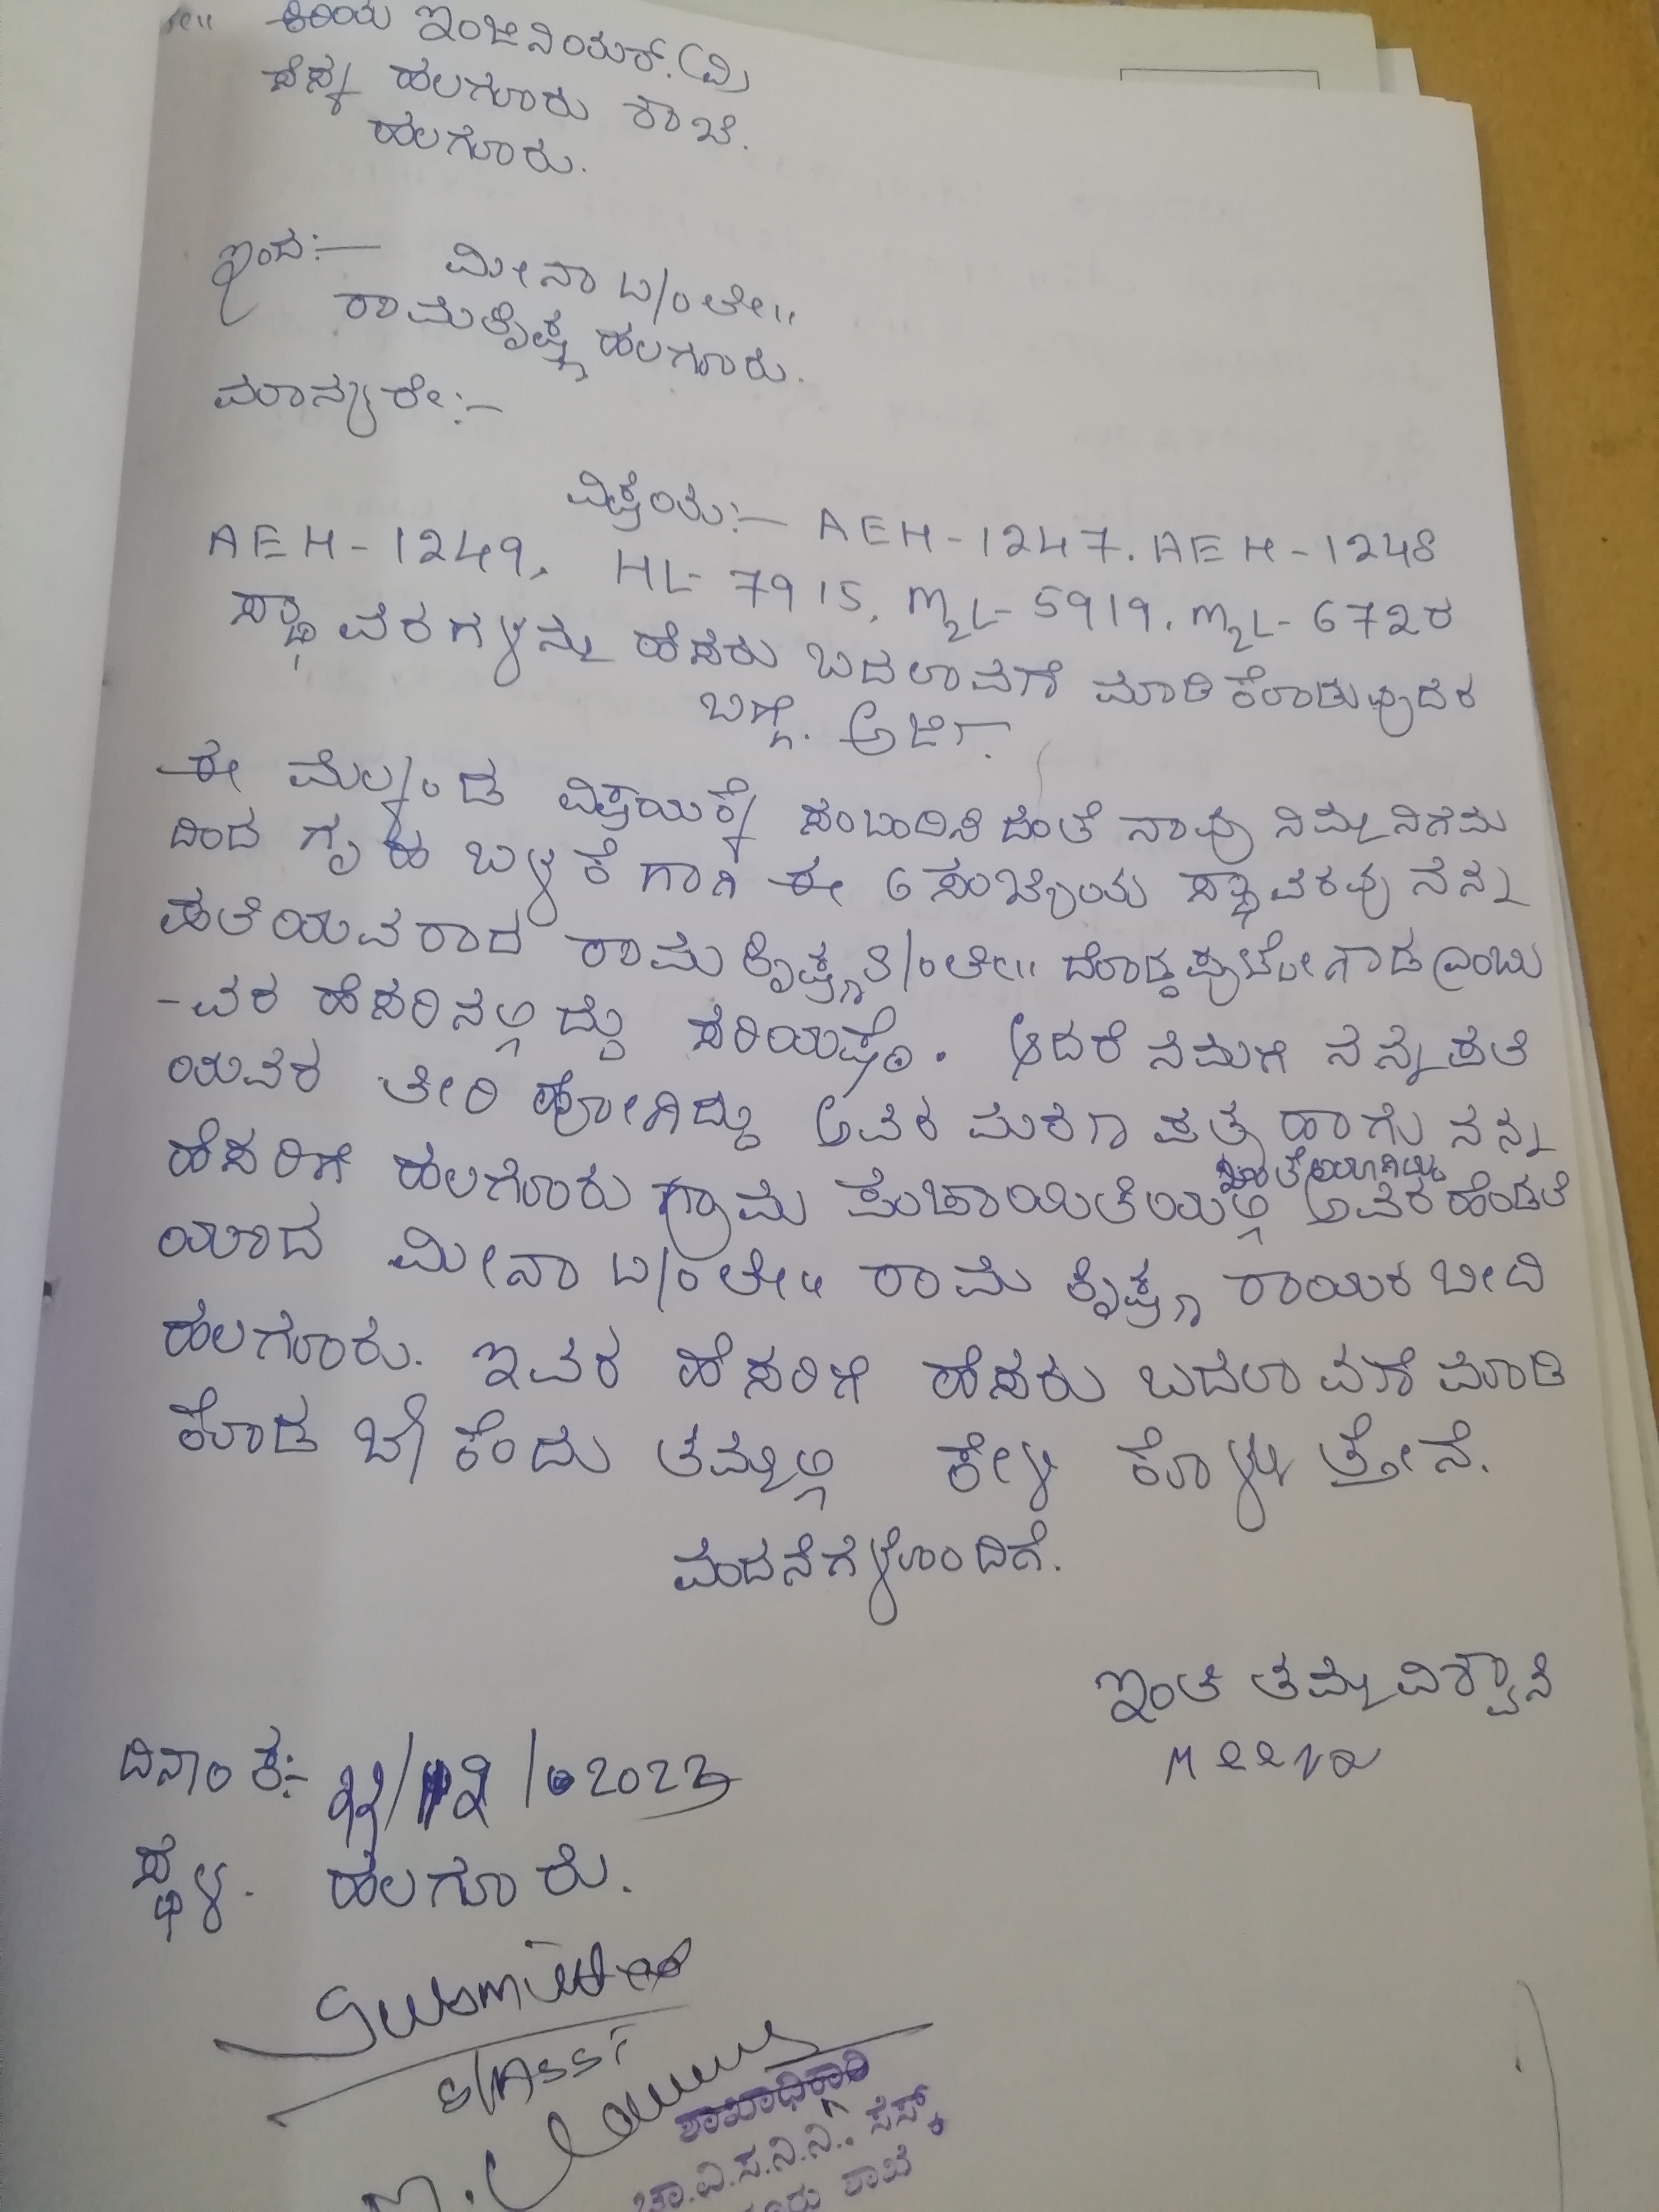 ಕಿರಿಯ ಇಂಜಿನಿಯರ್.(ವಿ)
ಸೆಸ್ಕ ಹಲಗೂರು ಶಾಖೆ.
ಹಲಗೂರು.
ಇಂದ:— ಮೀನಾ ಬಿ/o ಲೇ॥
ರಾಮಕೃಷ್ಣ ಹಲಗೂರು.
ಮಾನ್ಯರೇ:-
ವಿಷಯ:— AEH-1247. AEH-1248
AEH-1249, HL-7915, M2L-5919, M2L-672ರ
ಸ್ಥಾವರಗಳನ್ನು ಹೆಸರು ಬದಲಾವಣೆ ಮಾಡಿಕೊಡುವುದರ
ಬಗ್ಗೆ. ಅರ್ಜಿ.
ಈ ಮೇಲ್ಕಂಡ ವಿಷಯಕ್ಕೆ ಸಂಬಂದಿಸಿದಂತೆ ನಾವು ನಿಮ್ಮ ನಿಗಮ
ದಿಂದ ಗೃಹ ಬಳಕೆಗಾಗಿ ಈ 6 ಸಂಖ್ಯೆಯ ಸ್ಥಾವರವು ನನ್ನ
ಪತಿಯವರಾದ ರಾಮಕೃಷ್ಣ ಬಿ/o ಲೇ॥ ದೊಡ್ಡಪುಟ್ಟೇಗೌಡ ಎಂಬು
-ವರ ಹೆಸರಿನಲ್ಲಿದ್ದು ಸರಿಯಷ್ಠೆ. ಆದರೆ ನಮಗೆ ನನ್ನ ಪತಿ
ಯವರ ತೀರಿ ಹೋಗಿದ್ದು ಅವರ ಮರಣ ಪತ್ರ ಹಾಗು ನನ್ನ
ಹೆಸರಿಗೆ ಹಲಗೂರು ಗ್ರಾಮ ಪಂಚಾಯಿತಿಯಲ್ಲಿ ಖಾತೆಯಾಗಿದ್ದು ಅವರ ಹೆಂಡತಿ
ಯಾದ ಮೀನಾ ಬಿ/o ಲೇ॥ ರಾಮಕೃಷ್ಣ ರಾಯರ ಬೀದಿ
ಹಲಗೂರು. ಇವರ ಹೆಸರಿಗೆ ಹೆಸರು ಬದಲಾವಣೆ ಮಾಡಿ
ಕೊಡ ಬೇಕೆಂದು ತಮ್ಮಲ್ಲಿ ಕೇಳಿ ಕೊಳ್ಳುತ್ತೇನೆ.
ವಂದನೆಗಳೊಂದಿಗೆ.
ಇಂತಿ ತಮ್ಮ ವಿಶ್ವಾಸಿ
Meena
ದಿನಾಂಕ:- /2023
ಸ್ಥಳ. ಹಲಗೂರು.
Submitted
ಶಾಖಾಧಿಕಾರಿ
ಚಾ.ವಿ.ಸ.ನಿ.ನಿ., ಸೆಸ್ಕ್
ಶಾಖೆ